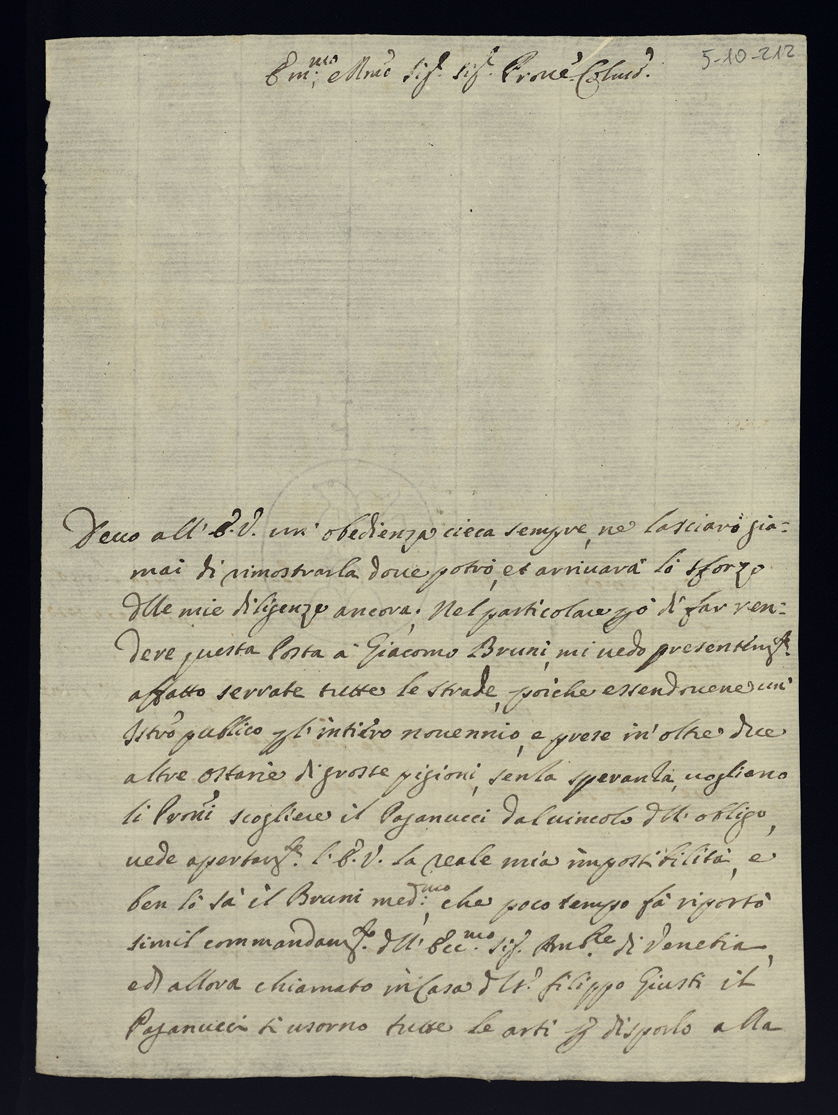 5-10-212
Em.mo e Rmo Sig.r Sig.r Prone Colmo.
Deuo all' E.V. un' obedienza cieca sempre, ne lasciarò gia=
mai di rimostrarla doue potrò, et arriuarà lo sforzo
dlle mie diligenze ancora; Nel particolare di far ren=
dere questa Posta à Giacomo Bruni, mi uedo presentem.te
affatto serrate tutte le strade, poiche essendouene un'
Istro publico p l'intiero nouennio, e prese in' oltre due
altre Ostarie di grosse pigioni, senza speranza, uogliano
li Proni sciogliere il Paganucci dal uincolo dll' obligo,
uede apertam.te l'E.V. la reale mia impossibilità, e
ben lo sà il Bruni med.mo, che poco tempo fà riportò
simil commandam.to dll' Ecc.mo Sig.r Amb.re di Venetia,
ed allora chiamato in Casa dl S.r Filippo Giusti il
Paganucci si usorno tutte le arti p disporlo alla